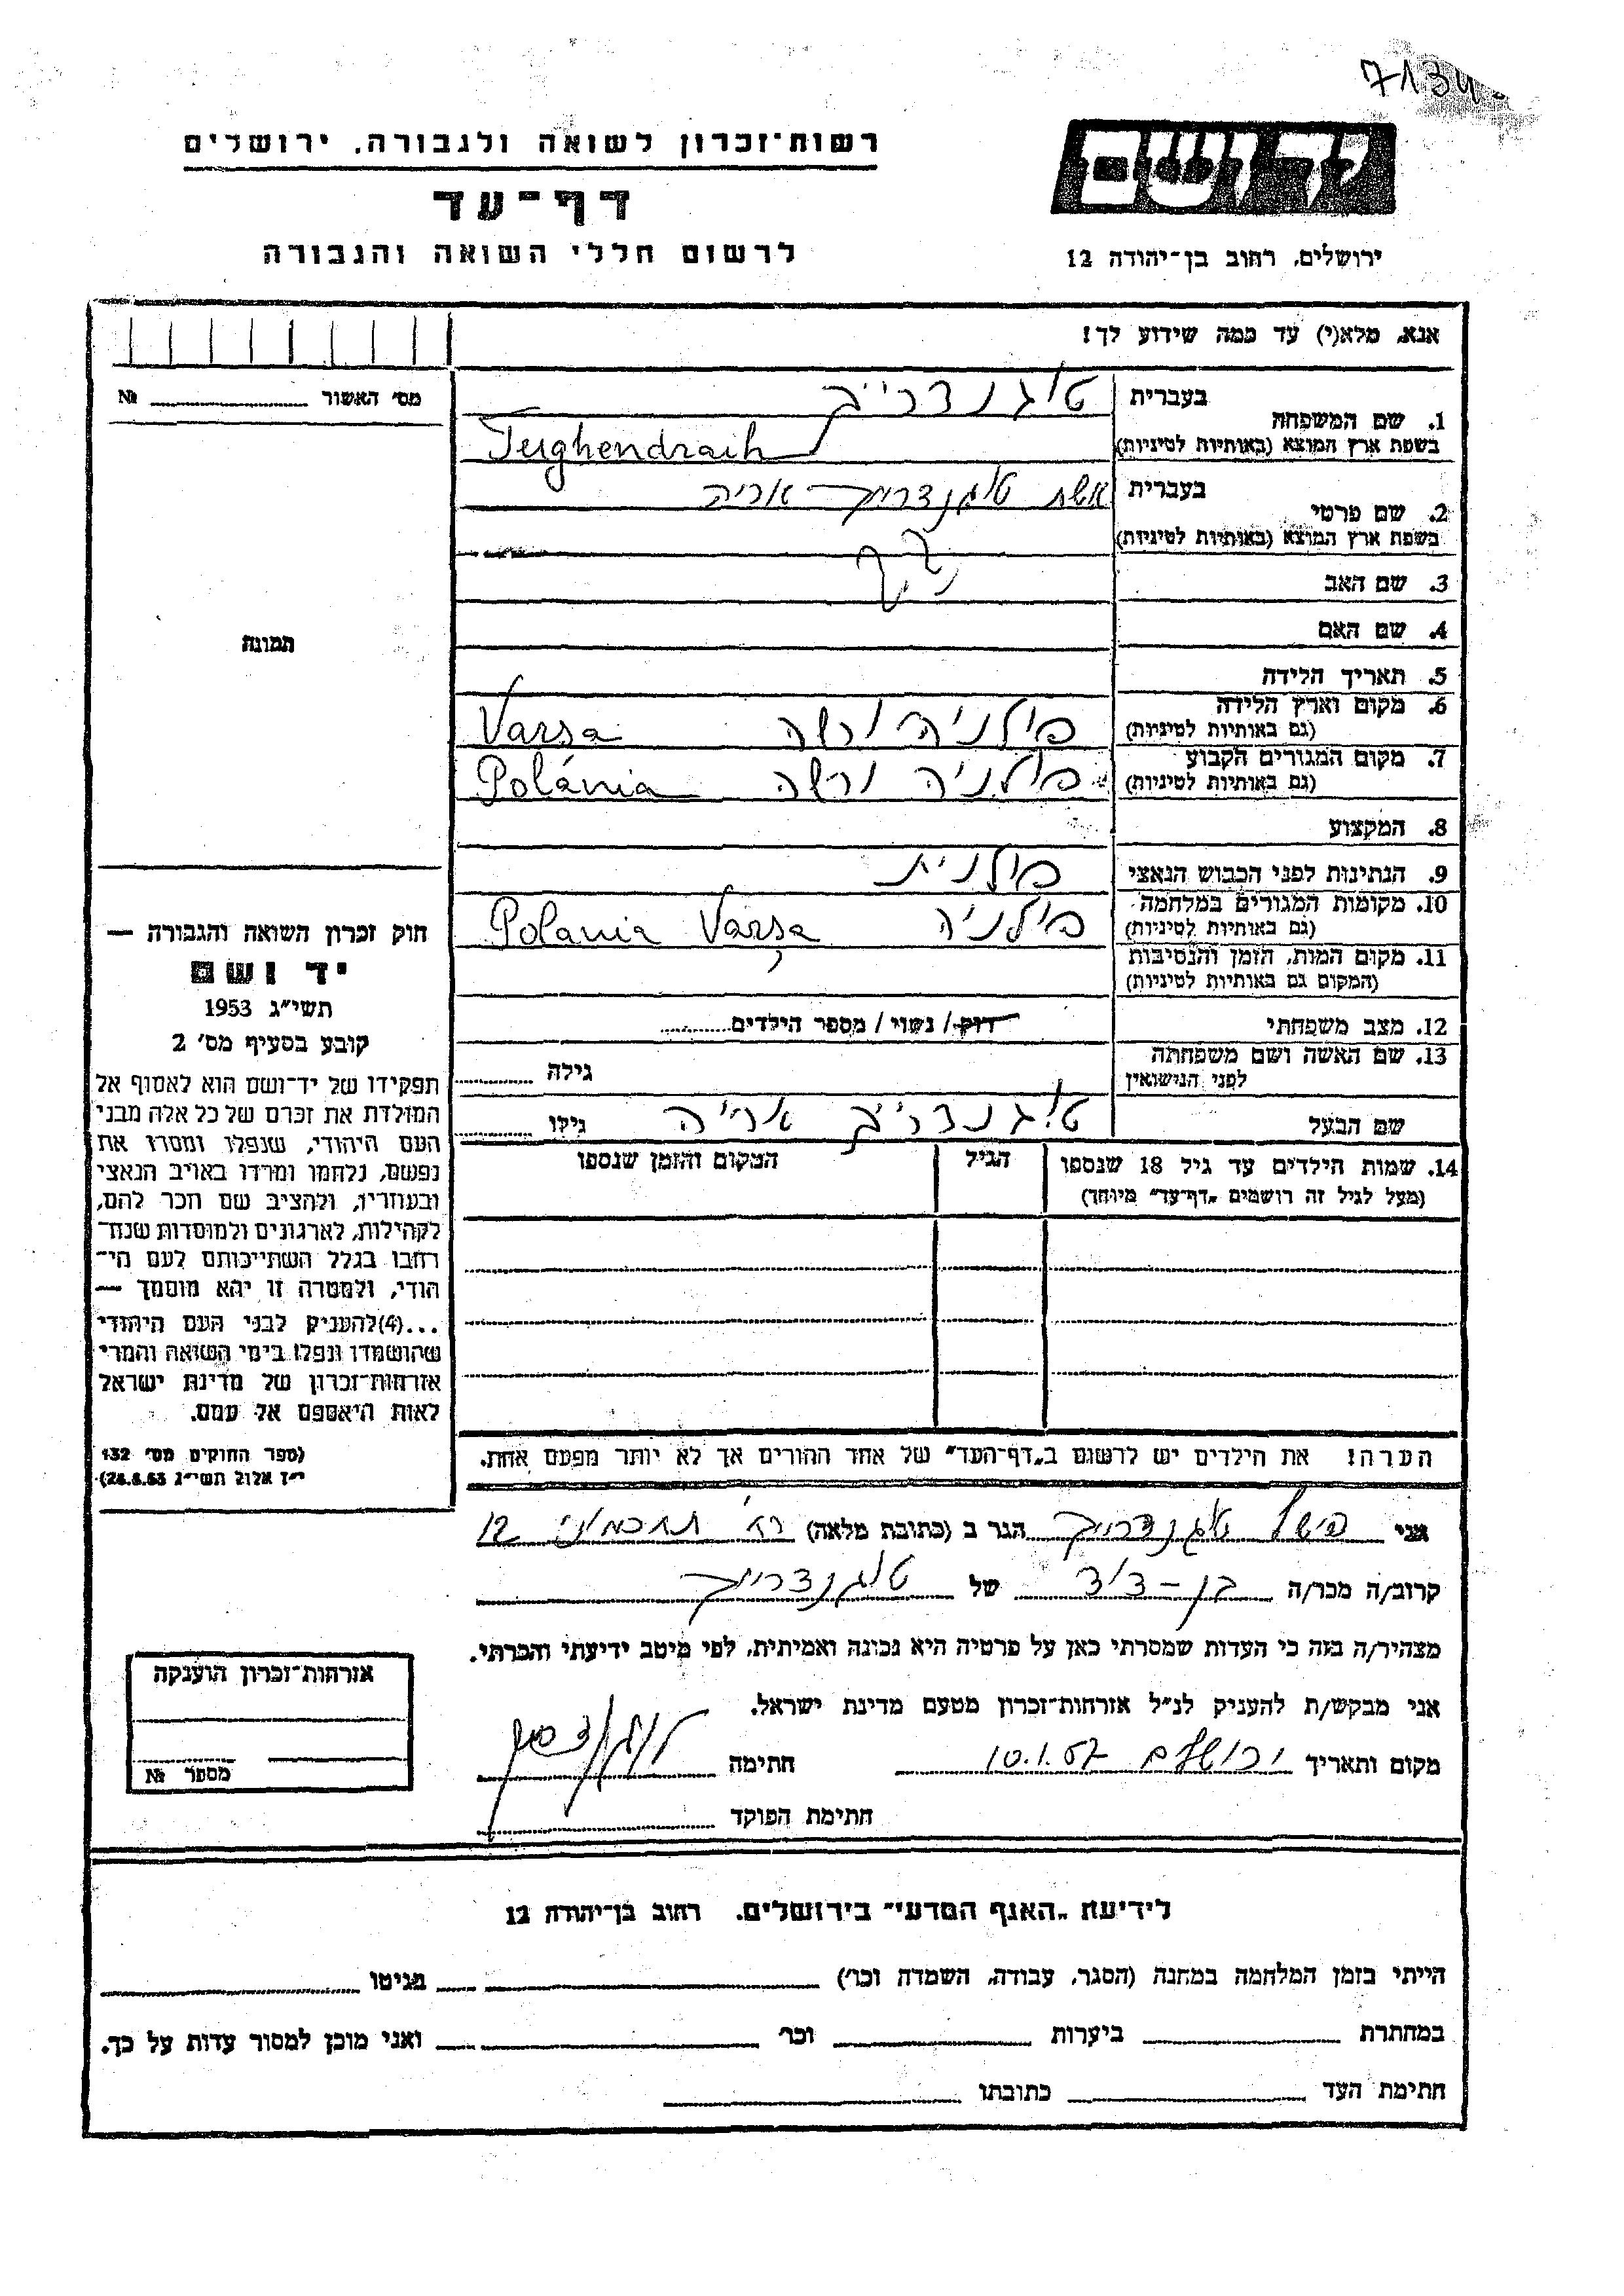 7134
רשות־זכרון לשואה ולגבורה, ירושלים
יד ושם
דף־עד
לרשום חללי השואה והגבורה
ירושלים, רחוב בן־יהודה 12
אנא, מלא(י) עד כמה שידוע לך!
מס׳ האשור № 
1. שם המשפחה
בעברית טוגנדרייך
בשפת ארץ המוצא (באותיות לטיניות) Tughendraih
2. שם פרטי
בעברית אשת טוגנדרייך אריה
בשפת ארץ המוצא (באותיות לטיניות)
3. שם האב
4. שם האם
תמונה
5. תאריך הלידה
6. מקום וארץ הלידה פולניה ורשה Varsa
(גם באותיות לטיניות)
7. מקום המגורים הקבוע פולניה ורשה Polánia
(גם באותיות לטיניות)
8. המקצוע
9. הנתינות לפני הכבוש הנאצי פולנית
10. מקומות המגורים במלחמה פולניה Polania Varsa
(גם באותיות לטיניות)
11. מקום המות, הזמן והנסיבות
(המקום גם באותיות לטיניות)
12. מצב משפחתי רוק/ נשוי/ מספר הילדים
13. שם האשה ושם משפחתה
לפני הנישואין גילה
שם הבעל טוגנדרייך אריה גילו
14. שמות הילדים עד גיל 18 שנספו הגיל המקום והזמן שנספו
(מעל לגיל זה רושמים „דף־עד” מיוחד)
חוק זכרון השואה והגבורה —
יד ושם
תשי״ג 1953
קובע בסעיף מס׳ 2
תפקידו של יד־ושם הוא לאסוף אל
המולדת את זכרם של כל אלה מבני
העם היהודי, שנפלו ומסרו את
נפשם, נלחמו ומרדו באויב הנאצי
ובעוזריו, ולהציב שם וזכר להם,
לקהילות, לארגונים ולמוסדות שנח־
רבו בגלל השתייכותם לעם הי־
הודי, ולמטרה זו יהא מוסמך —
...(4)להעניק לבני העם היהודי
שהושמדו ונפלו בימי השואה והמרי
אזרחות־זכרון של מדינת ישראל
לאות היאספם אל עמם.
(ספר החוקים מס׳ 132
י״ז אלול תשי״ג 28.8.53)
הערה! את הילדים יש לרשום ב„דף־העד” של אחד ההורים אך לא יותר מפעם אחת.
אני פישל טוגנדרייך הגר ב (כתובת מלאה) רח׳ תחכמוני 12
קרוב/ה מכר/ה בן־דוד של טוגנדרייך
מצהיר/ה בזה כי העדות שמסרתי כאן על פרטיה היא נכונה ואמיתית, לפי מיטב ידיעתי והכרתי.
אני מבקש/ת להעניק לנ״ל אזרחות־זכרון מטעם מדינת ישראל.
מקום ותאריך ירושלים 10.1.57 חתימה
חתימת הפוקד
אזרחות־זכרון הוענקה
מספר №
לידיעת „האגף המדעי” בירושלים, רחוב בן־יהודה 12
הייתי בזמן המלחמה במחנה (הסגר, עבודה, השמדה וכו׳) בגיטו
במחתרת ביערות וכו׳ ואני מוכן למסור עדות על כך.
חתימת העד כתובתו